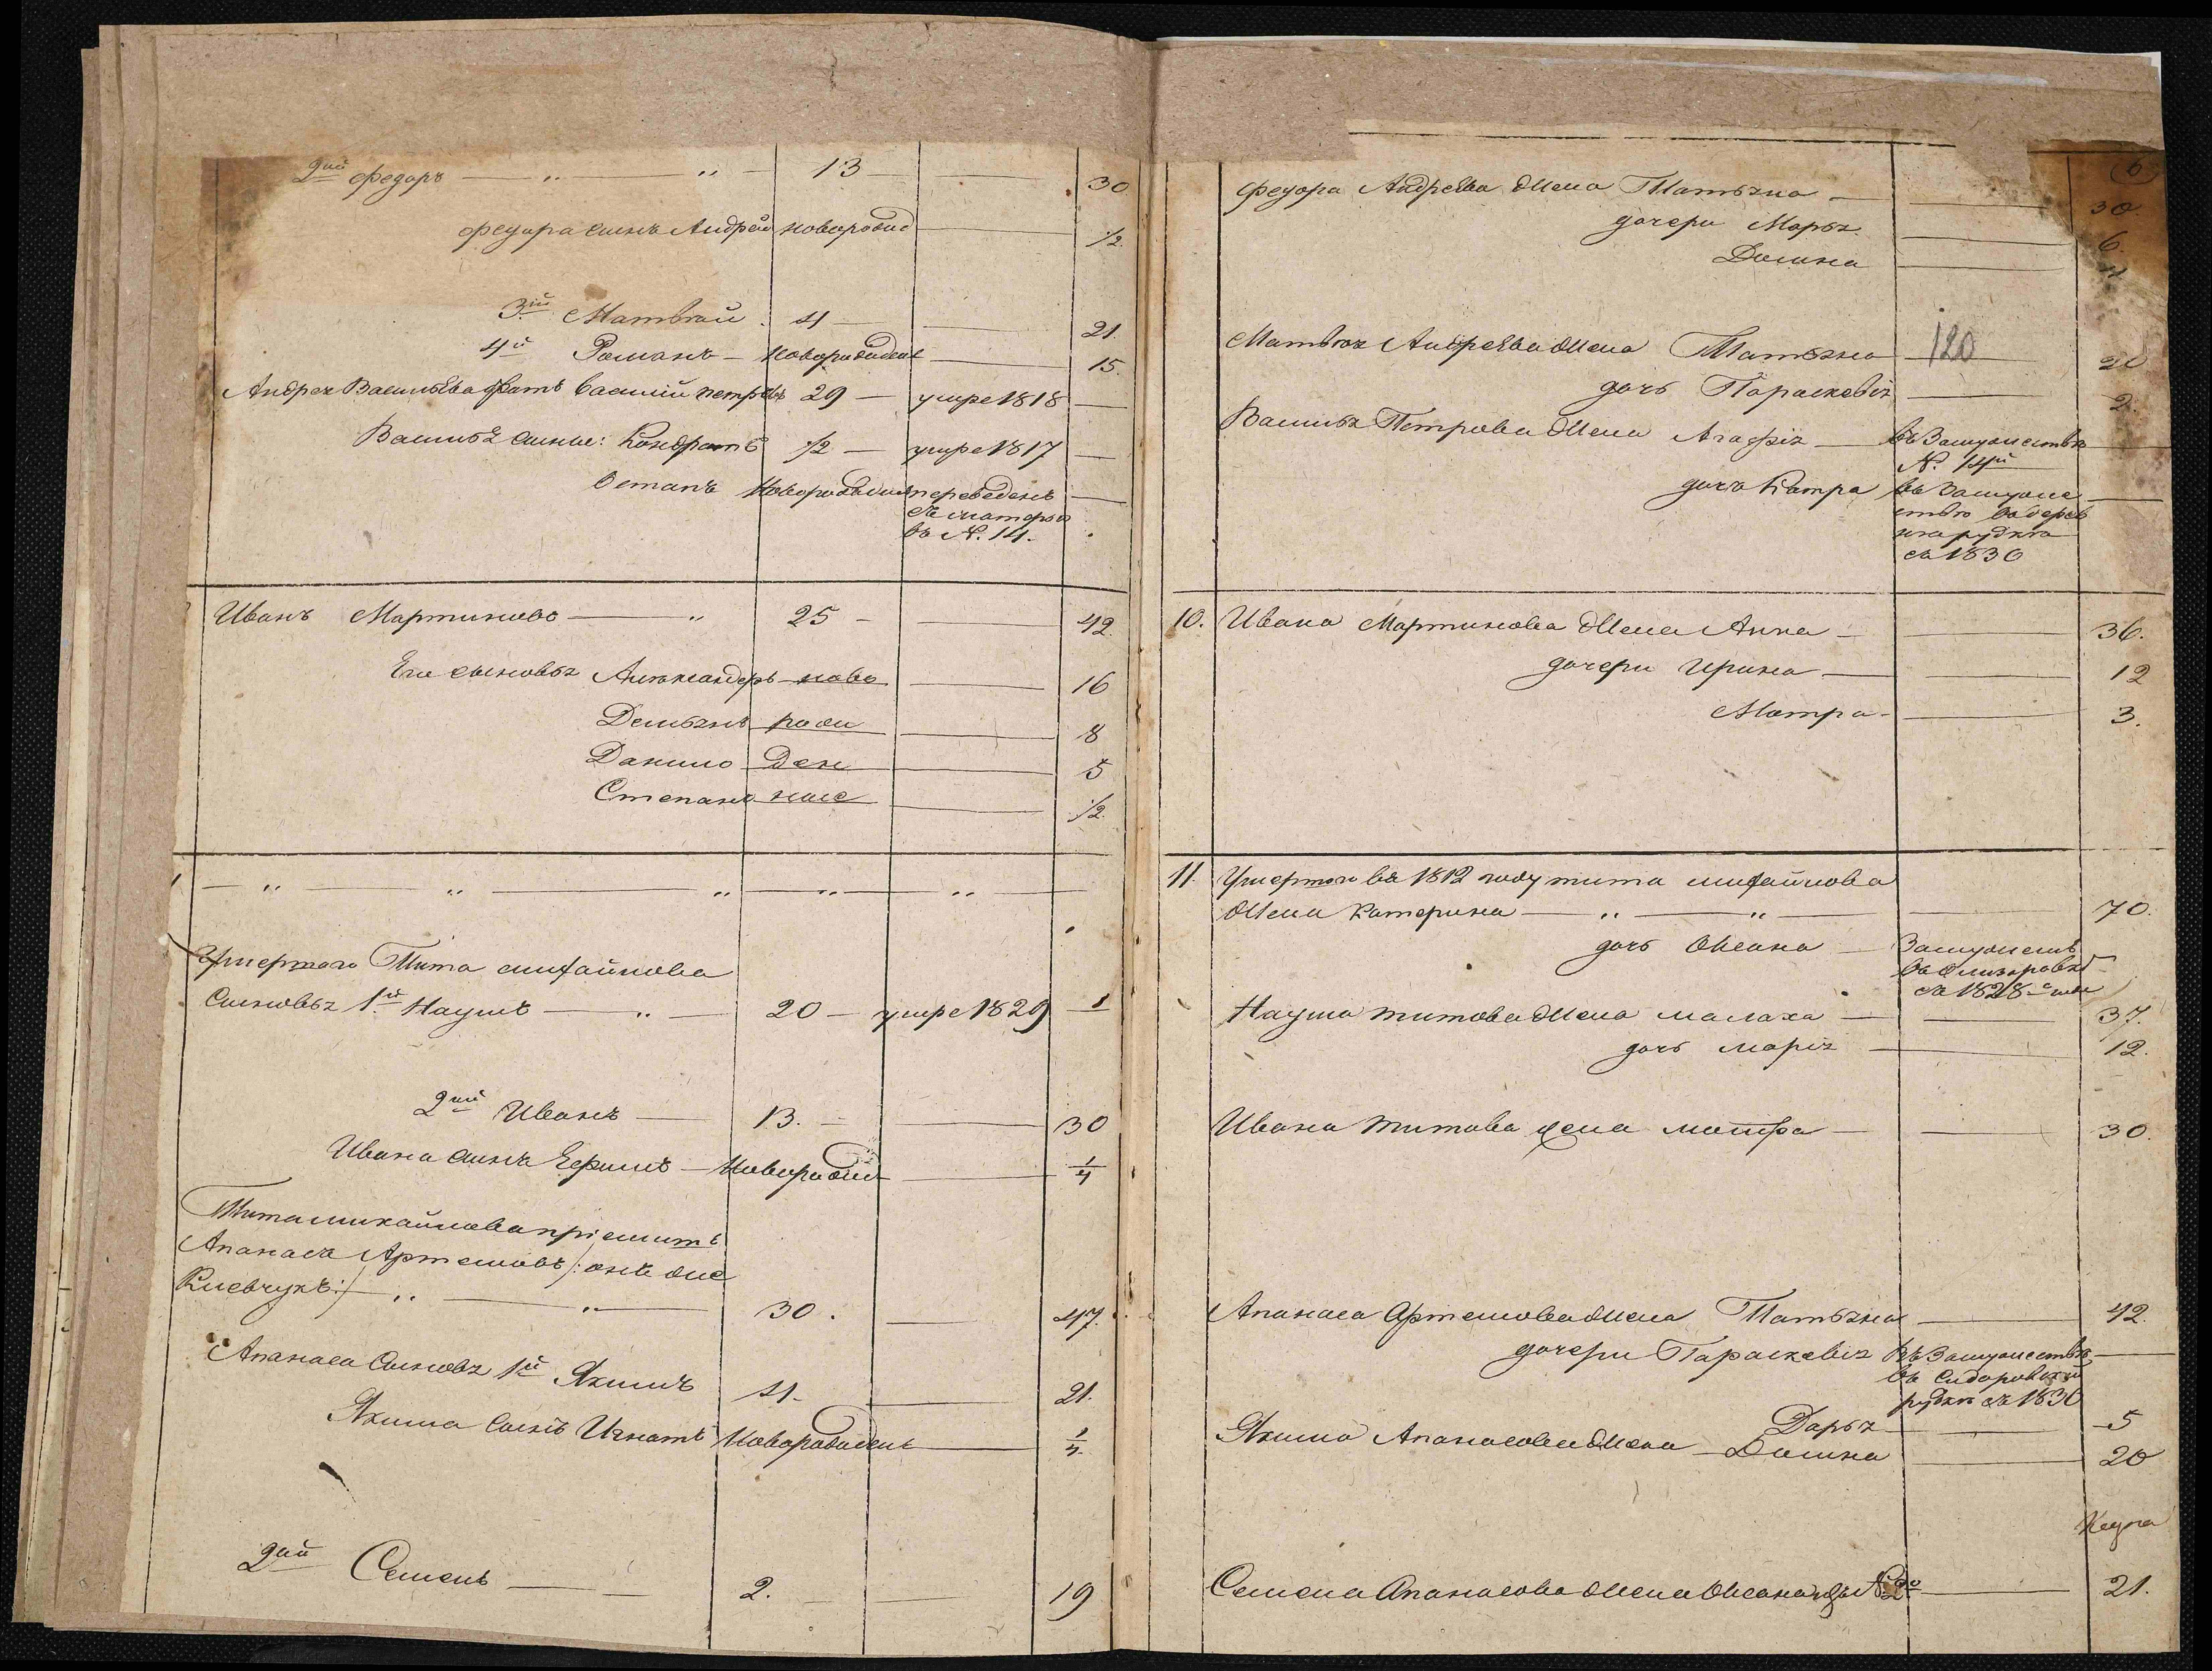 2ий Федоръ — „ „ — 13 — 30
Федора сынъ Андрей новорожд — 1/2.
3ій Матвѣй. 4 — 21.
4й Романъ — новорожденъ — 15.
Андрея Васильева братъ Василій Петровъ 29 — умре 1818 —
Василья сыны: Кондратъ 1/2 — умре 1817 —
Остапъ новорожденъ переведенъ —
съ матерью
въ №. 14.
Иванъ Мартиновъ — „ 25 — 42.
Его сыновья Александеръ — ново — 16
Демьянъ — рож — 8
Данило — ден — 5
Степанъ — ные — 1/2.
— „ — „ — „ — „ — „ —
Умершого Тита михайлова
Сыновья 1й Наумъ — „ — 20 — умре 1829 —
2ий Иванъ — 13. — 30
Ивана сынъ Ефимъ — новорожд — 1/4
Тита михайлова пріемишъ
Апанасъ Артемовъ /: онъ же
Киевчукъ :/ — „ — „ — 30. — 47.
Апанаса сыновья 1й Якимъ 4. — 21.
Якима сынъ Игнатъ новорожденъ — 1/4.
2ий Семенъ — 2. — 19
6
Федора Андреева жена Татьяна — 30.
дочери Марья. — 6.
Домна —
Матвѣя Андреева жена Татьяна — 120 — 20
дочь Параскевія — 2.
Василья Петрова жена Агафія — въ Замужествѣ —
№. 14й
дочь Катра въ Замуже —
ствѣ въ дерев
нѣ рудкѣ
съ 1830
10. Ивана Мартинова жена Анна — 36.
дочери Ирина — 12
Мотра — 3.
11. Умершого въ 1812 году тита михайлова
жена Катерина — „ — „ — 70.
дочь Оксана — Замужемъ
съ 1828го
Наума титова жена малаха — 37.
дочь марія — 12.
Ивана титова жена мотра — 30.
Апанаса Артемова жена Татьяна — 42.
дочери Параскевія Въ Замужествѣ —
въ Сидоровской
рудкѣ съ 1830
Дарья — 5
Якима Апанасова жена Домна — 20
Семена Апанасова жена Оксана №2го — 21.